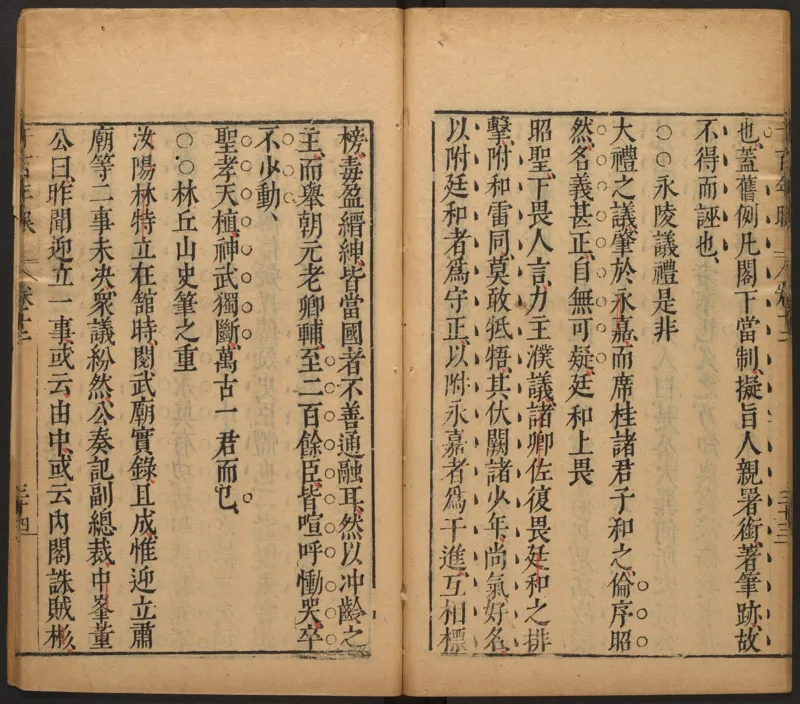 也、蓋舊例凡閣下當制、擬旨人親署銜、著筆跡、故
不得而誣也、
○○永陵議禮是非
大禮之議、肇於永嘉、而席桂諸君子和之、倫序昭
然、名義甚正、自無可疑、廷和上畏
昭聖、下畏人言、力主濮議、諸卿佐復畏廷和之排
擊、附和雷同、莫敢牴牾、其伏闕諸少年、尚氣好名、
以附廷和者爲守正、以附永嘉者爲干進、互相標
榜、毒盈縉紳、皆當國者不善通融耳、然以冲齡之
主、而舉朝元老卿輔、至二百餘臣、皆喧呼慟哭、卒
不少動、
聖孝天植、神武獨斷、萬古一君而已、
○○林丘山史筆之重
汝陽林特立在舘時、閱武廟實錄且成、惟迎立肅
廟等二事未决、衆議紛然、公奏記副總裁、中峯董
公曰、昨聞迎立一事、或云由中、或云内閣誅賊彬、
卷十二
三十四